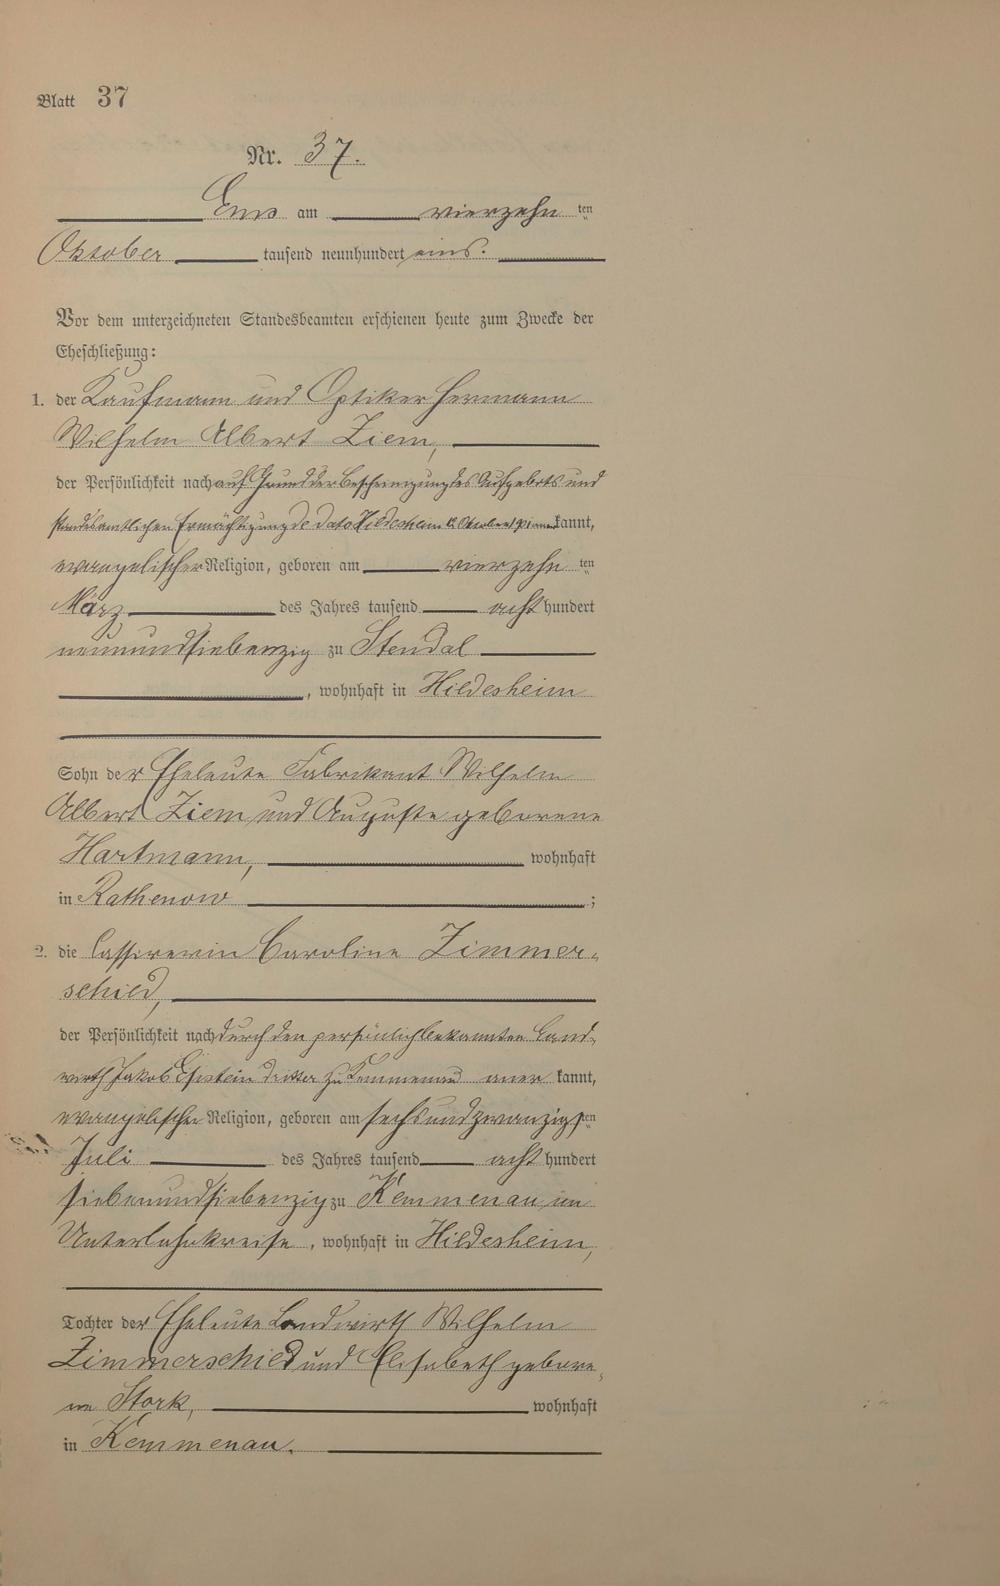 Blatt 37
Nr. 37.
Ems am vierzehn ten
Oktober tausend neunhundert eins.
Vor dem unterzeichneten Standesbeamten erschienen heute zum Zwecke der
Eheschließung:
1. der Kaufmann und Optiker Hermann
Wilhelm Albert Ziem,
der Persönlichkeit nach auf Grund der Bescheinigung des Aufgebots und
standesamtlichen Ermächtigung de dato Hildesheim 12. Oktober 1901 anerkannt,
evangelischer Religion, geboren am vierzehn ten
März des Jahres tausend acht hundert
neunundsiebenzig zu Stendal
, wohnhaft in Hildesheim
Sohn der Eheleute Fabrikant Wilhelm
Albert Ziem und Auguste geborene
Hartmann, wohnhaft
in Rathenow ;
2. die Cassirerin Caroline Zimmer-
schied,
der Persönlichkeit nach durch den persönlich bekannten Land-
wirth Jakob Epstein dritter zu Kemmenau aner kannt,
evangelischer Religion, geboren am sechsundzwanzigsten
Juli des Jahres tausend acht hundert
siebenundsiebenzig zu Kemmenau im
Unterlahnkreise, wohnhaft in Hildesheim,
Tochter der Eheleute Landwirth Wilhelm
Zimmerschied und Elisabeth gebore-
ne Stork, wohnhaft
in Kemmenau.